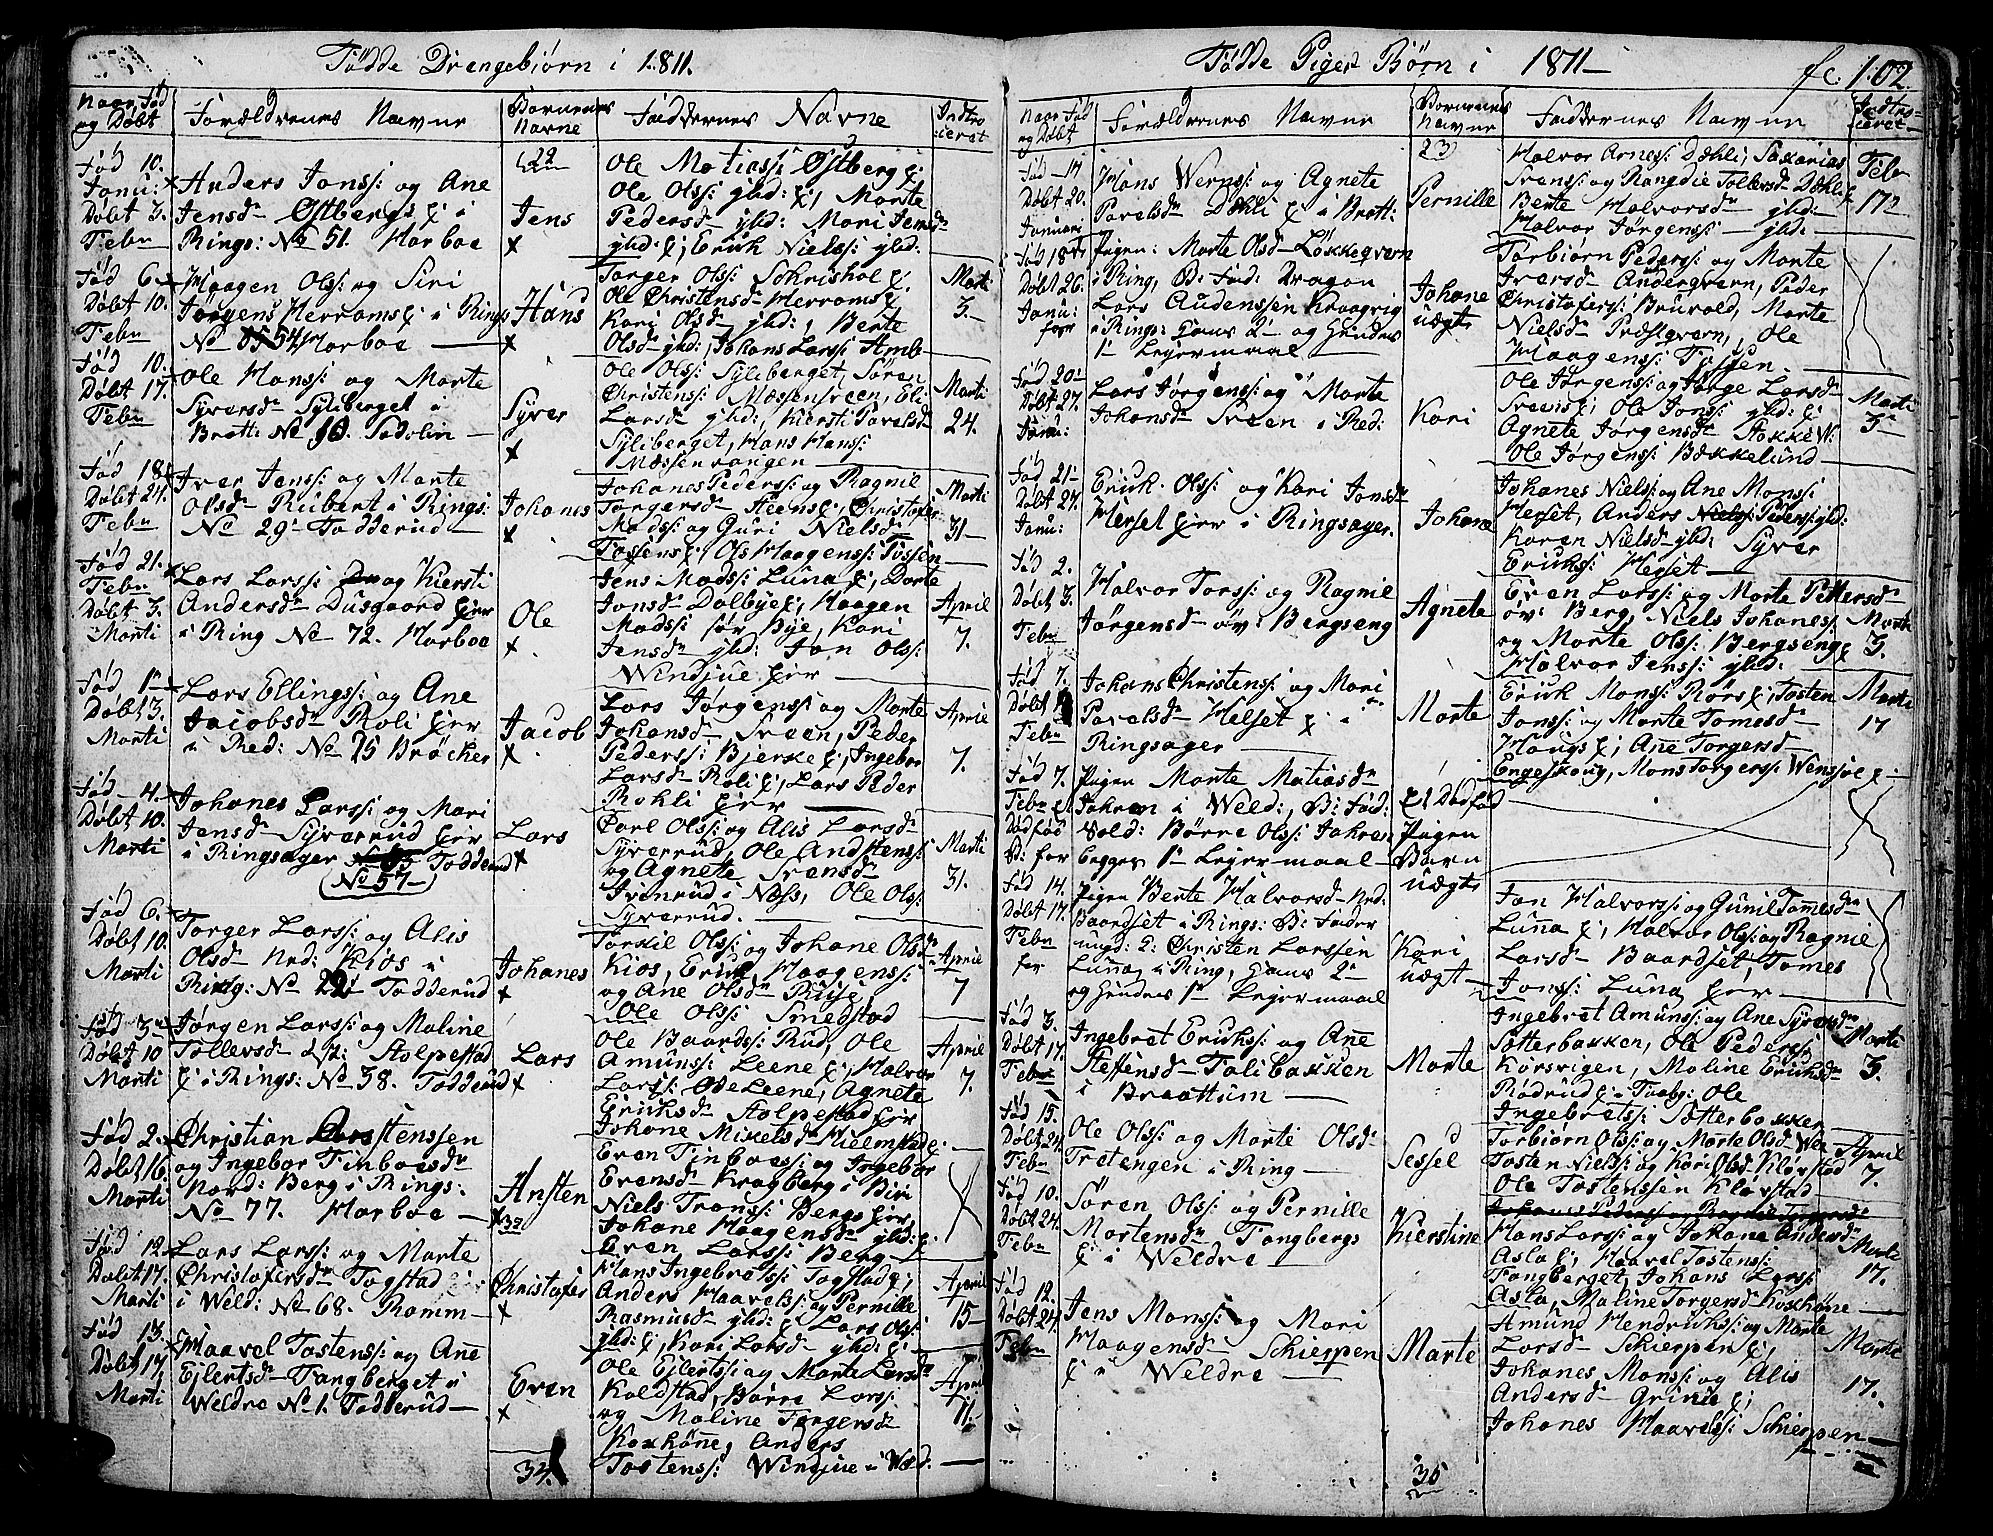 Fødde Drengebiørn i 1811.
Naar Fød og Døbt
Forældrenes Navne
Børnenes Navne
Faddernes Navne
Indtro ieret
22
Fød 10. Janu: Døbt 3. Febr
Anders Jonss: og Ane
Jensdr Østbergs E i
Rings: No 51. Harboe
Jens
Ole Matiass: Østberg E;
Ole Olss: ybd: E; Marte
Pedersdr ybd: Mari Jensdr
ybd: E; Erick Nielss: ybd:
Fød 6 Døbt 10. Febr
Haagen Olss: og Siri
Jørgens Herrams E i Rings
No 54 Harboe
Hans
Torger Olss: Schrishol E;
Ole Christensdr Herrams E
Kari Olsdr ybd:, Berte
Olsdr ybd:, Johans Larss: Amb
Marti 3.
Fød 10. Døbt 17. Febr
Ole Hanss: og Marte
Syversdr Syliberget i
Brøtt: No 10. Sadolin
Syver
Ole Olss: Syliberget, Søren
Christens: Mæssensveen, Eli
Larsdr ybd:, Kiersti Pavelsdr
Syliberget, Hans Hans:
Mæssenvangen
Marti 24.
Fød 18 Døbt 24. Febr
Iver Jenss: og Marte
Olsdr Rubert i Rings:
No 29 Fodderud
Johanes
Johanes Pederss: og Ragnil
Torgersdr Steens E; Christofer
Madss: og Guri Nielsdr
Tossens E; Ols Haagenss: Tossen
Marti 31
Fød 21. Febr Døbt 3. Marti
Lars Larss: og Kiersti
Andersdr Dusgaard Eier
i Ring No 72. Harboe
Ole
Jens Madss: Luna E; Dorte
Jonsdr Dalbye E; Haagen
Madss: sør Bye, Kari
Jensdr ybd: Jon Olss:
Windjue Eier
April 7.
Fød 1 Døbt 3. Marti
Lars Ellingss: og Ane
Jacobsdr Roli Eier
i Red: No 25 Brøcker
Jacob
Lars Jørgenss: og Marte
Johansdr Sveen, Peder
Pederss: Bjerke E; Ingebor
Larsdr Roli E; Lars Peder
Rohli Eier
April 7.
Fød 4. Døbt 10. Marti
Johanes Larss: og Mari
Jensdr Syverrud Eier
i Ringsager Fodderud
No 57
Lars
Carl Olss: og Alis Larsdr
Syverrud, Ole Andstenss:
og Agnete Svensdr
Ivenrud i Næss, Ole Olss:
Syverrud.
Marti 31.
Fød 6. Døbt 10. Marti
Torger Larss: og Alis
Olsdr Nrd: Kios i
Ring: No 22 Fodderud
Johanes
Torskil Olss: og Johane Olsdr
Kios, Erick Haagenss:
og Ane Olsdr Ruse,
Ole Olss: Smedstad
April 7
Fød 3 Døbt 10 Marti
Jørgen Larss: og Maline
Tollersdr Stolpestad
E i Rings: No 38. Fodderud
Lars
Ole Baardss: Rud, Ole
Amunss: Leene E; Halvor
Larss: Leene, Agnete
Ericksdr Stolpestad Eier
Johane Mikelsdr Hielmstad E
April 7.
Fød 2. Døbt 16. Marti
Christian Anstenssen
og Ingebor Finboesdr
Nord: Berg i Rings:
No 77. Harboe
Ansten
Even Finboess: og Ingebor
Evensdr Kragberg i Biri
Niels Tronss: Bergs Eier
Johane Haagensdr ybd: E.
Even Larss: Berg
Fød 12 Døbt 17. Marti
Lars Larss: og Marte
Christofersdr Fogstad
i Weld: No 68. Ramm
Christofer
Hans Ingebretss: Fogstad E;
Anders Haavelss: og Pernille
Rasmusdr ybd: E; Lars Olss:
ybd: E; Kari Larsdr ybd: E;
April 15
Fød 13. Døbt 17. Marti
Haavel Tostens: og Ane
Ejlertsdr Fangberget i
Weldre No 1. Fodderud
Even
Ole Ejlertss: og Marte Larsdr
Kaldstad, Børre Larss:
og Maline Torgersdr
Koxhøne, Anders
Tostens: Windjue i Wæld:
April 11.
34.
Fødde Piger Børn i 1811
fc. 102.
Naar Fød og Døbt
Forældrenes Navne
Børnenes Navne
Faddernes Navne
Indtro ieret
23
Fød 17 Døbt 20. Januari
Hans Werpss: og Agnete
Pavelsdr Dæhli E i Brøtt:
Pernille
Halvor Arness: Dæhli, Saxarias
Svenss: og Rangdie Tollersdr Dæhli E
Berte Halvorsdr ybd:
Halvor Jørgenss: ybd:
Febr 17
Fød 18 Døbt 26. Janu: for
Pigen: Marte Olsdr Løkkegvern
i Ring, B: Fad: Dragon
Lars Audenssen Kraagvig
i Rings: Hans 2 og Hendes
1 Lejermaal
Johane uægt
Torbiørn Pederss: og Marte
Iversdr Andergvern, Peder
Christoferss: Bruvold, Marte
Nielsdr Præstgvern, Ole
Haagenss: Tossen.
Fød 20 Døbt 27. Janu:
Lars Jørgenss: og Marte
Johansdr Sveen i Red:
Kari
Ole Jørgenss: og Inge Larsdr
Sveens E; Ole Jonss: ybd: E;
Agnete Jørgensdr Stokke W:
Ole Jørgenss: Bækkelund
Marti 3
Fød 21 Døbt 27. Janu:
Erick Olss: og Kari Jonsdr
Herset Eier i Ringsager.
Johane
Johanes Niels: og Ane Monss:
Herset, Anders Pederss: ybd:
Karen Nielsdr ybd: Syver
Ericks: Herset
Fød 2. Døbt 3. Febr
Halvor Torss: og Ragnil
Jørgensdr øv: Bergseng
Agnete
Even Larss: og Marte Pettersdr
øv: Berg, Niels Johaness
og Marte Olss: Bergseng E
Halvor Jenss: ybd.
Marti 3.
Fød 7. Døbt Febr
Johans Christens: og Mari
Pavelsdr Helset E i
Ringsager
Marte
Erick Monss: Rørs E; Tosten
Jonss: og Marte Tomesdr
Haugs E; Ane Torgersdr
Engeskoug, Mons Torgerss: Wensjoe E
Marti 17
Fød 7. Febr Dødfød
Pigen Marte Matiasdr
Jahren i Weld:, B: Fad:
Sold: Børre Olss: Jahren
begges 1 Lejermaal
Et Dødfød Pigen Barn uægt
Fød 14. Døbt 17. Febr for
Pigen Berte Halvorsdr Nrd:
Baardset i Rings: B: Fader
ungd: C: Christen Larssen
Luna i Ring, Hans 2
og Hendes 1 Lejermaal
Kari uægt
Jon Halvorss: og Gunil Tomesdr
Luna E; Halvor Olss: og Ragnil
Larsdr Baardset, Tomes
Jonss: Luna Eier
Fød 3. Døbt 17. Febr
Ingebret Ericks: og Ane
Steffensdr Falibakken
i Braattum
Marte
Ingebret Amuns: og Ane Syversdr
Sætterbakken, Ole Pederss
Korsvigen, Maline Ericksdr
Rødrud i Faab: Ole
Ingebretss: Sætterbakken
Marti 3.
Fød 15. Døbt 24 Febr
Ole Olss: og Marte Olsdr
Tretengen i Ring
Sessel
Torbiørn Olss: og Marte Olsdr
Tosten Nielss: og Kari Olsdr Kløvstad
Ole Tostenssen Kløvstad
April 7.
Fød 10. Døbt 24. Febr
Søren Olss: og Pernille
Mortensdr Fangbergs
E i Weldre
Kierstine
Hans Larss: og Johane Andersdr
Asla E; Haavel Tostens:
Fangberget, Johans Larss:
Asla, Maline Torgersdr Koxhøne
Marti 17.
Fød 12. Døbt 24. Febr
Jens Monss: og Mari
Haagensdr Schierpen
E i Weldre
Marte
Amund Hendrickss: og Marte
Larsdr Schierpen E;
Johanes Monss: og Alis
Andersdr Grinie E;
Johanes Haavelss: Schierpen
Marti 17.
35